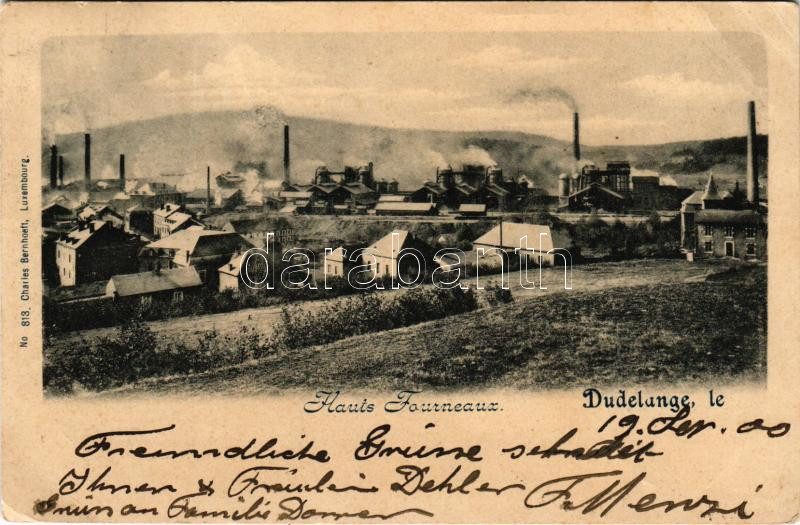 No 813, Charles Bernhoeft, Luxembourg.
darabanth
Hauts Fourneaux.
Dudelange, le
19. Fev. 00
Freundliche Grüsse sendet
Ihnen & Fräulein Dehler F. Menzi
Grün an Familie